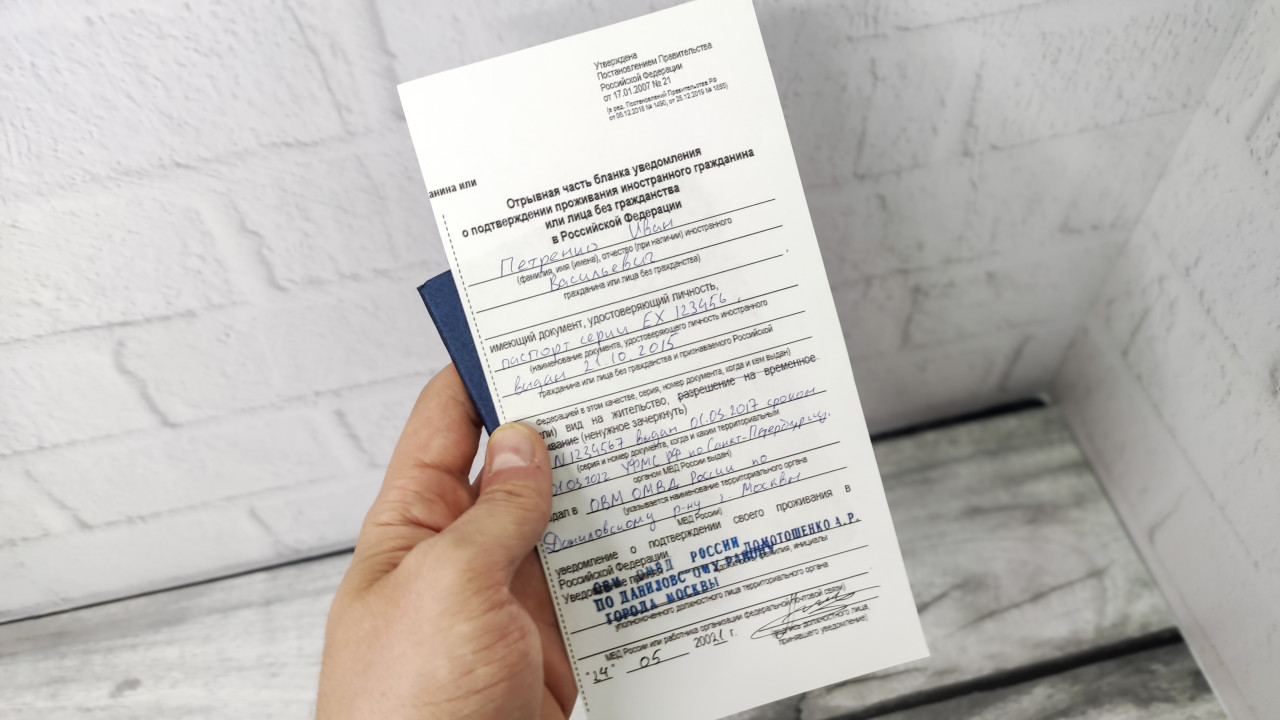 Утверждена
Постановлением Правительства
Российской Федерации
от 17.01.2007 № 21
(в ред. Постановлений Правительства РФ
от 05.12.2018 № 1490, от 25.12.2019 №
анина или
Отрывная часть бланка уведомления
о подтверждении проживания иностранного гражданина
или лица без гражданства
в Российской Федерации
Петренко Иван
(фамилия, имя (имена), отчество (при наличии) иностранного
Васильевич
гражданина или лица без гражданства)
имеющий документ, удостоверяющий личность,
паспорт серии ЕХ 123456,
(наименование документа, удостоверяющего личность иностранного
выдан 21.10.2015
гражданина или лица без гражданства и признаваемого Российской
Федерацией в этом качестве, серия, номер документа, когда и кем выдан)
ли) вид на жительство, разрешение на временное
ивание (ненужное зачеркнуть)
N1234567 выдан 01.03.2017 сроком
(серия и номер документа, когда и каким территориальным
01.03.2022 УФМС РФ по Санкт-Петербургу.
органом МВД России выдан)
дал в ОВМ ОМВД России по
(указывается наименование территориального органа
Даниловскому р-ну г. Москвы
МВД России)
уведомление о подтверждении своего проживания в
Российской Федерации.
Уведомление
ОВМ ОМВД РОССИИ ДОМОТОШЕНКО А.Р.
фамилия, инициалы
ПО ДАНИЛОВС ОМУ РАЙОНУ
ГОРОДА МОСКВЫ
уполномоченного должностного лица территориального органа
МВД России или работника организации федеральной почтовой связи)
"24" 05 2002 г.
(подпись должностного лица,
принявшего уведомление)